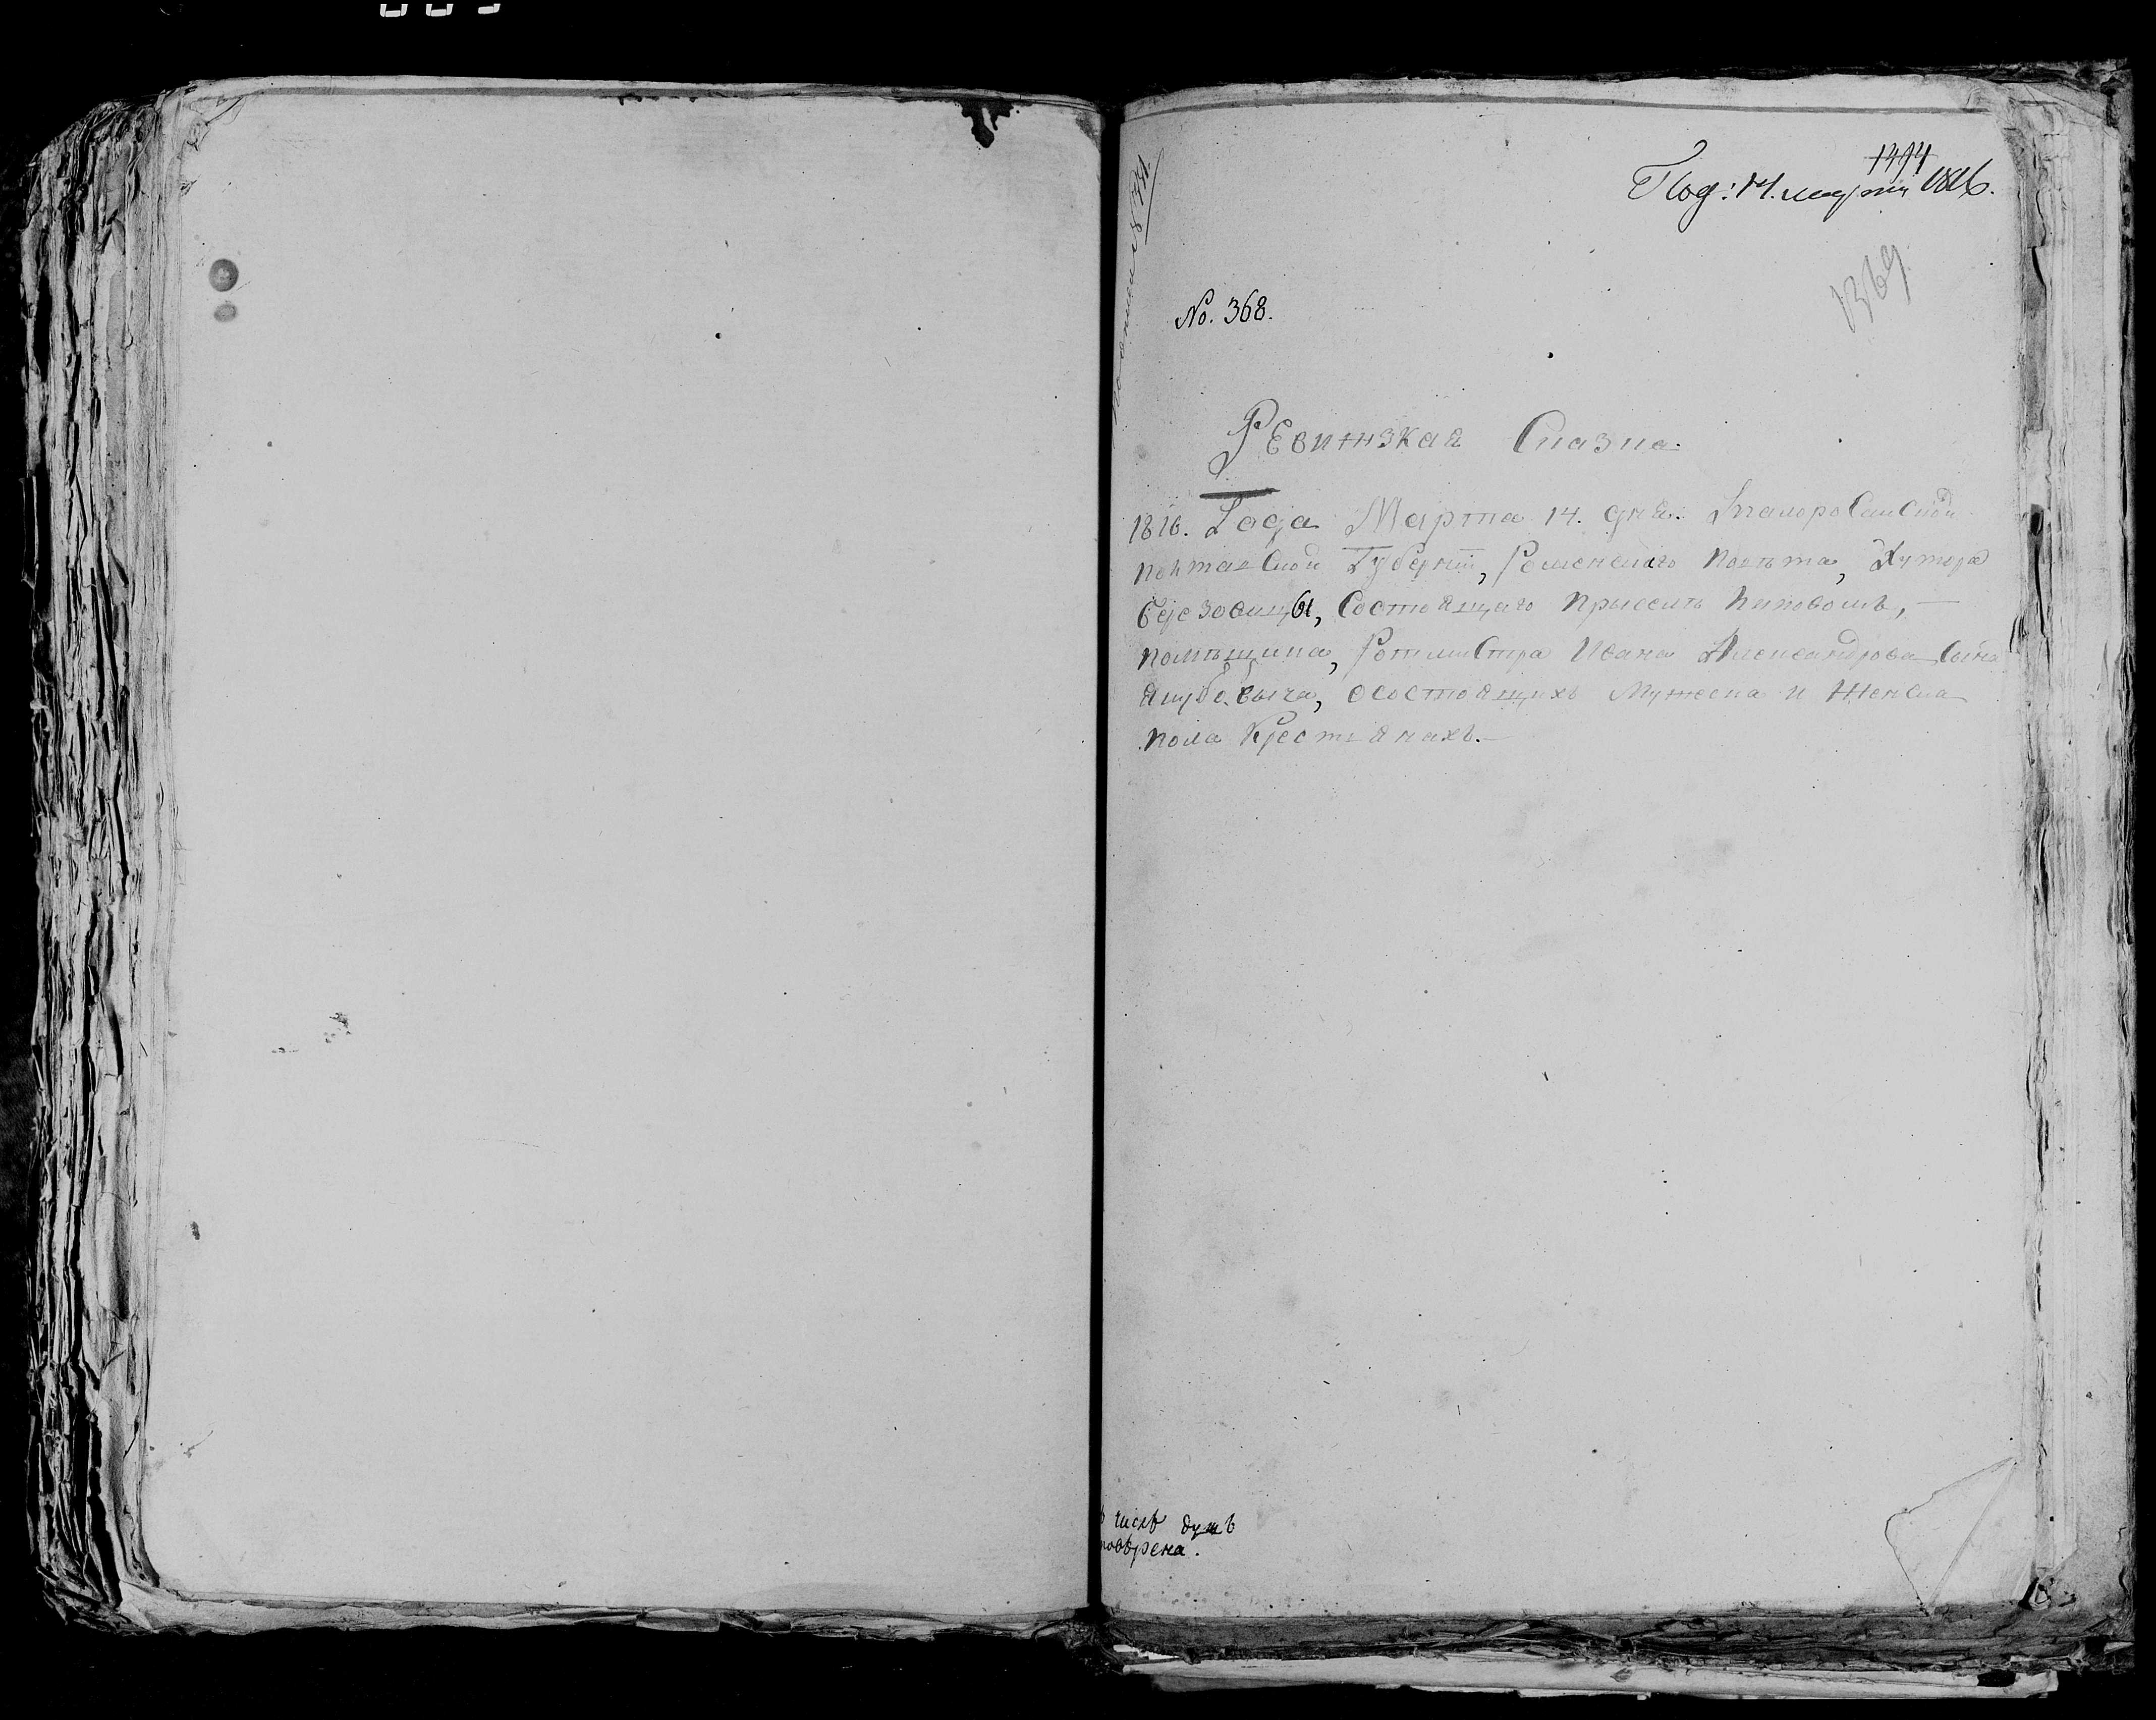 1494
Под: 14. марта 1816.
1369
No. 368.
Ревижзкая Сказка
1816. Года Марта 14. дня. Малоросийской
Полтавской Губерніи, Роменского Повѣта, Хутора
Березовицы, Состоящаго При селѣ
Помѣщика, Ротмистра Ивана Александрова Сына
Якубовича, осостоящихъ Мужеска и Женска
пола Крестьянахъ.
числѣ душъ
повѣрена.